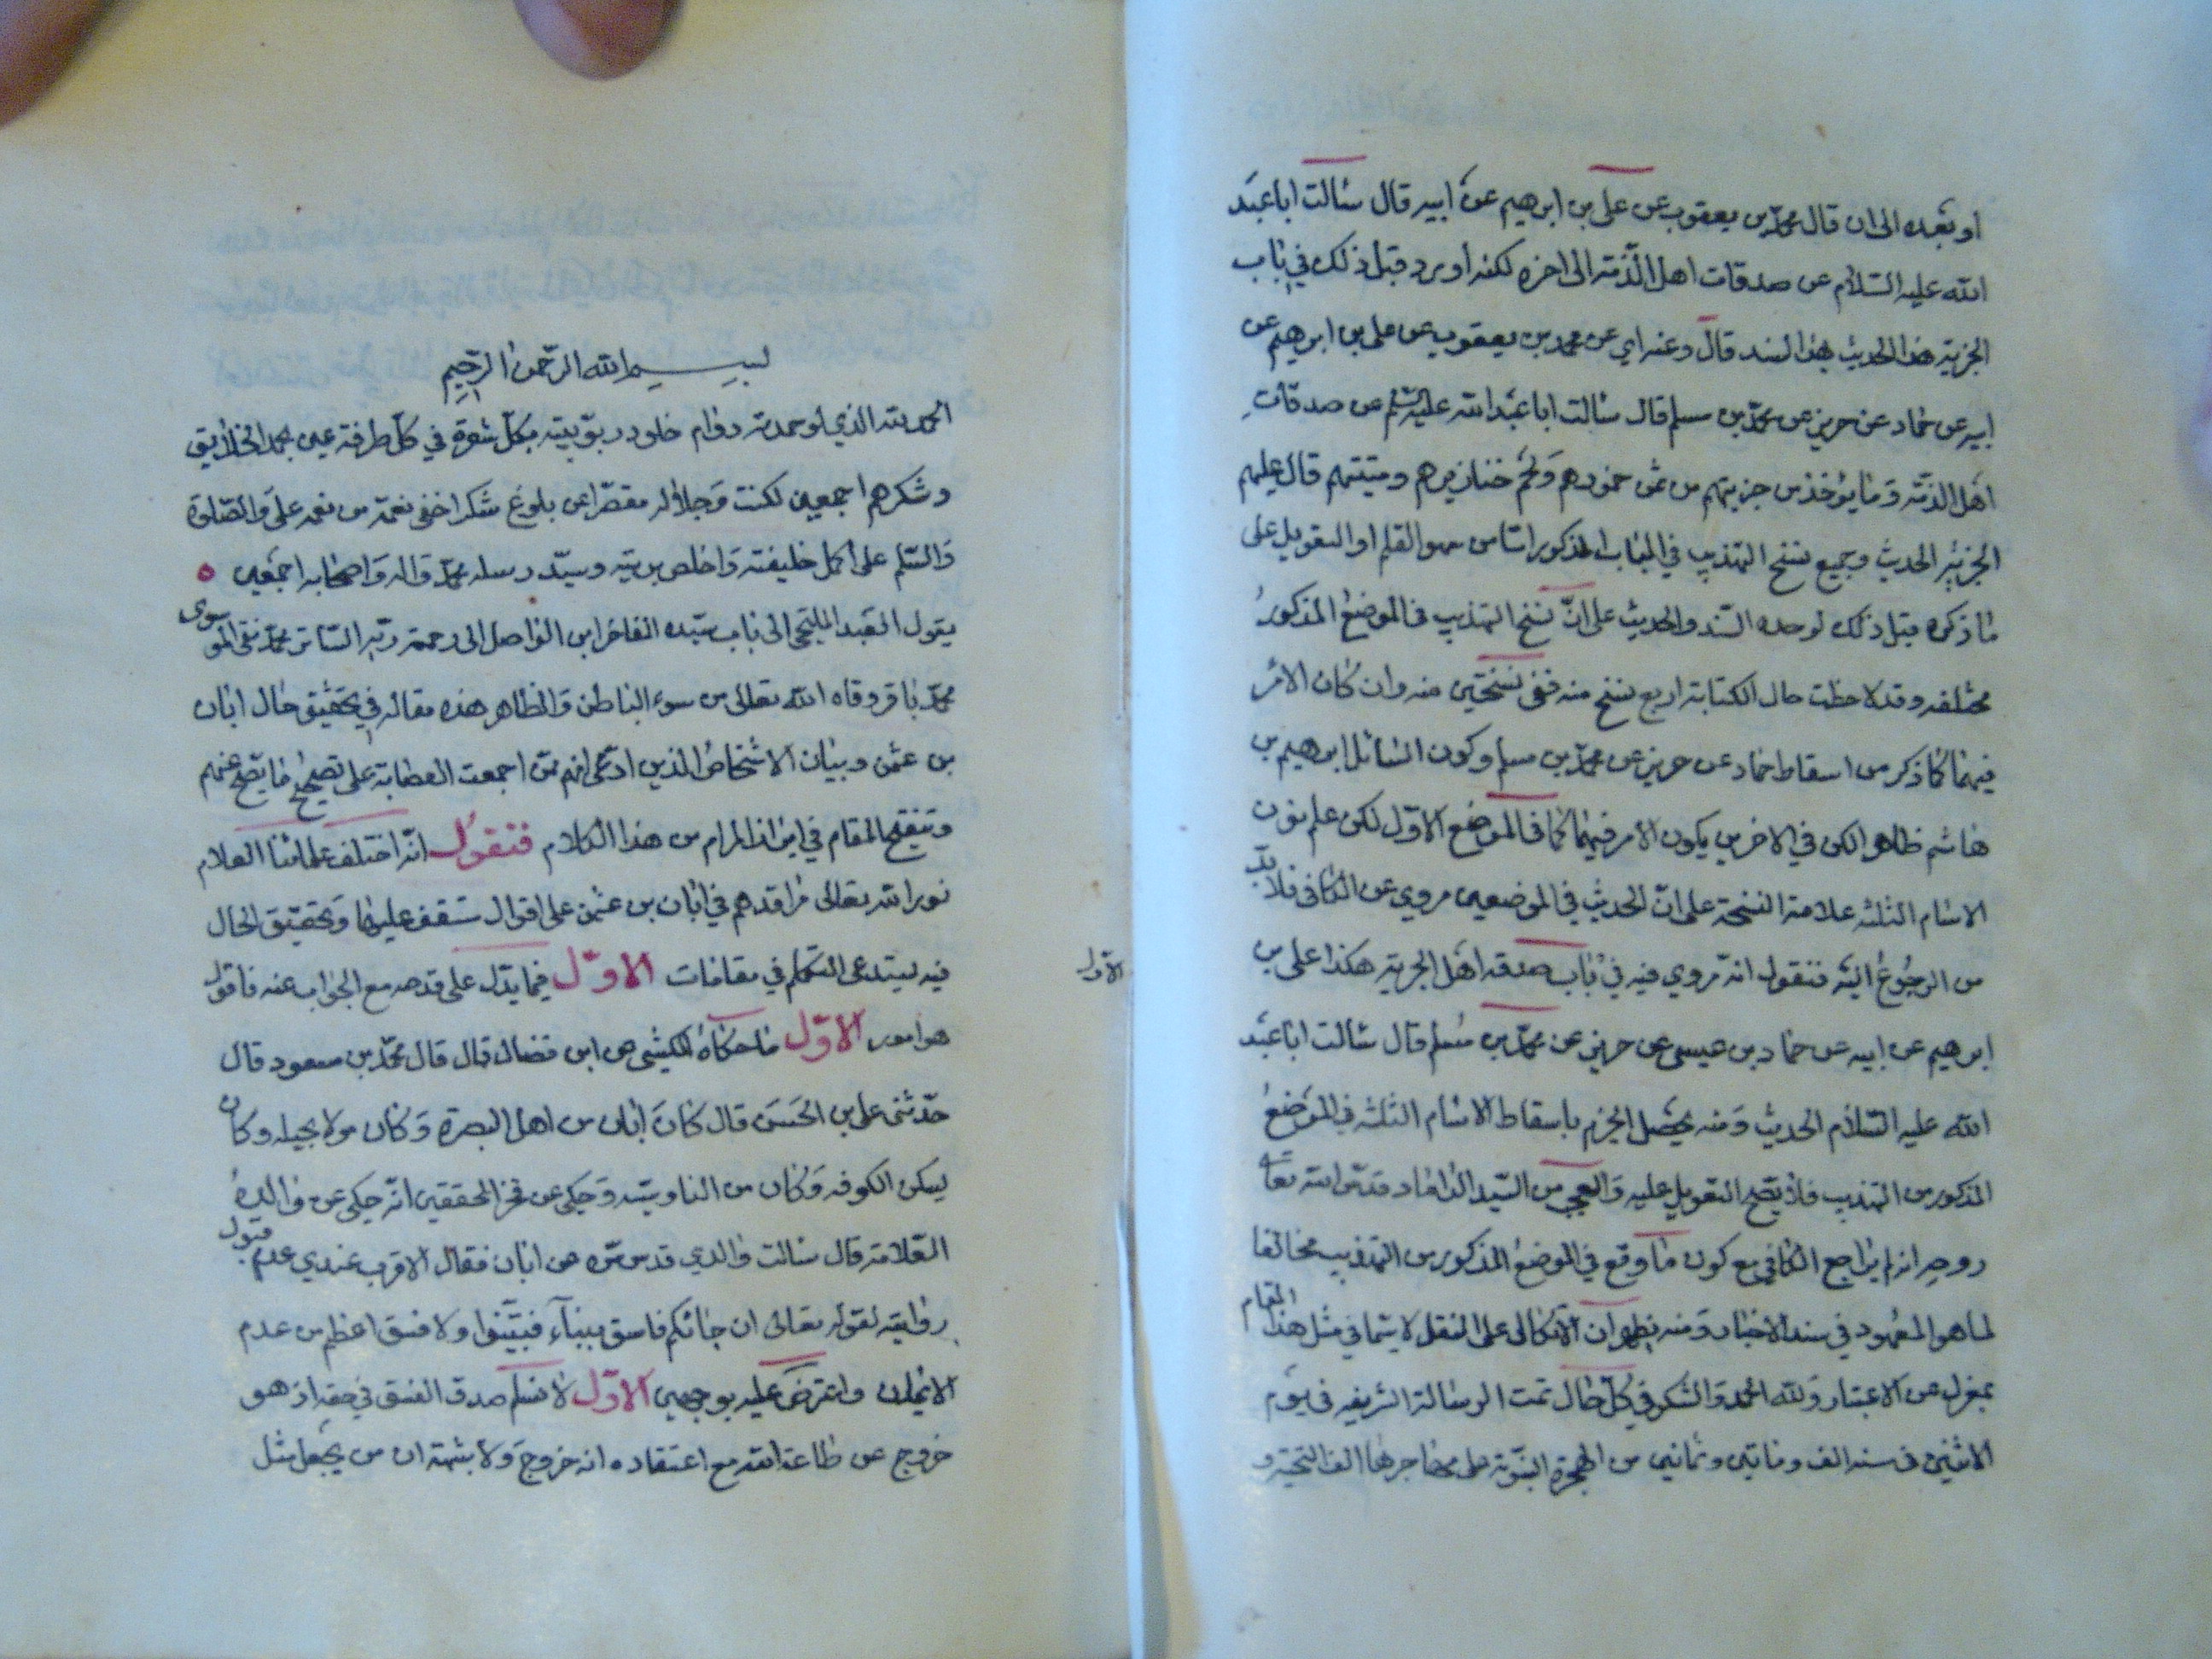 او بعده الى ان قال محمد بن يعقوب عن على بن ابرهيم عن ابيه قال سالت ابا عبد
الله عليه السلام عن صدقات اهل الذمة الى اخره لكنه اورد قبل ذلك في باب
الجزية هذا الحديث بهذا السند قال وعنه اي عن محمد بن يعقوب عن على بن ابرهيم عن
ابيه عن حماد عن حريز عن محمد بن مسلم قال سالت ابا عبد الله عليه السلم عن صدقات
اهل الذمة وما يؤخذ من جزيتهم من ثمن خمورهم ولحم خنازيرهم وميتتهم قال عليهم
الجزية الحديث وجميع نسخ التهذيب في الباب المذكور اما من سهو القلم او التعويل على
ما ذكره قبل ذلك لوحده السند والحديث على ان نسخ التهذيب في الموضع المذكور
مختلفه وقد لاحظت حال الكتابة اربع نسخ منه ففي نسختين منه وان كان الامر
فيهما كما ذكر من اسقاط حماد عن حريز عن محمد بن مسلم وكون السائل ابرهيم بن
هاشم ظاهرا لكن في الاخريين يكون الامر فيهما كما في الموضع الاول لكن علم فوق
الاسام الثلثه علامة النسخة على ان الحديث في الموضعين مروي عن الكافي فلا بد
من الرجوع اليه فنقول انه مروي فيه في باب صدقه اهل الجزية هكذا على بن
ابرهيم عن ابيه عن حماد بن عيسى عن حريز عن محمد بن مسلم قال سالت ابا عبد
الله عليه السلام الحديث ومنه يحصل الجزم باسقاط الاسام الثلثه في الموضع
المذكور من التهذيب فلا يصح التعويل عليه والعجب من السيد الداماد قدس الله تعا
روحه انه لم يراجع الكافي مع كون ما وقع في الموضع المذكور من التهذيب مخالفا
لما هو المعهود في سند الاخبار ومنه يظهر ان الاتكال على النقل لا سيما في مثل هذا المقام
بمعزل عن الاعتبار ولله الحمد والشكر في كل حال تمت الرسالة الشريفه في يوم
الاثنين في سنه الف وماتين وثمانين من الهجرة النبوية على مهاجرها الف التحية و
بسم الله الرحمن الرحيم
الحمد لله الذي لو حمدته دوام خلود ربوبيته بكل شعرة في كل طرفة عين بحمد الخلايق
وشكرهم اجمعين لكنت وجلاله مقصرا عن بلوغ شكر اخفى نعمة من نعمه على والصلوة
والسلم على اكمل خليفته واخلص بريته وسيد رسله محمد واله واصحابه اجمعين ه
يقول العبد الملتجى الى باب سيده الفاخر ابن الواصل الى رحمة ربه الساتر محمد نقى الموسوى
محمد باقر وقاه الله تعالى من سوء الباطن والظاهر هذه مقاله في تحقيق حال ابان
بن عثمن وبيان الاشخاص الذين ادعى انهم ممن اجمعت العصابة على تصحيح ما يصح عنهم
وتنقيح المقام في ابراز المرام من هذا الكلام فنقول انه اختلف علمائنا العلام
نور الله تعالى مراقدهم في ابان بن عثمن على اقوال ستقف عليها وتحقيق الحال
فيه يستدعى التكلم في مقامات الاول فيما يدل على قدحه مع الجواب عنه فاقول
الاول
هو امور الاول ما حكاه الكشى عن ابن فضال قال قال محمد بن مسعود قال
حدثنى على بن الحسن قال كان ابان من اهل البصرة وكان مولا بجيله وكان
يسكن الكوفه وكان من الناوسيه وحكى عن فخر المحققين انه حكى عن والده
العلامة قال سالت والدي قدس سره عن ابان فقال الاقرب عندي عدم قبول
روايته لقوله تعالى ان جائكم فاسق بنباء فتبينوا ولا فسق اعظم من عدم
الايمان واعترض عليه بوجهين الاول لا نسلم صدق الفسق في حقه اذ هو
خروج عن طاعة الله مع اعتقاده انه خروج ولا شبهة ان من يجعل مثل